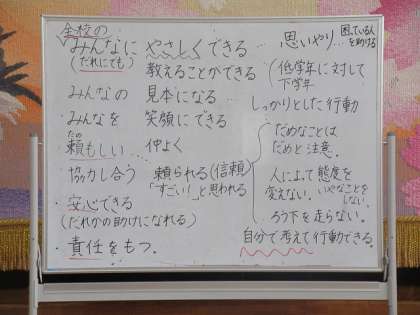 全校の
みんなに やさしくできる
(だれにでも) 教えることができる
みんなの 見本になる
みんなを 笑顔にできる
たの
頼もしい 仲よく
協力し合う 頼られる(信頼)
「すごい!」と思われる
・安心できる
(だれかの助けになれる)
・責任をもつ。
思いやり… 困っている人を助ける
(低学年に対して
下学年
しっかりとした行動
だめなことは
だめと注意。
人によって態度を
変えない。いやなことをしない。
ろう下を走らない。
自分で考えて行動できる。